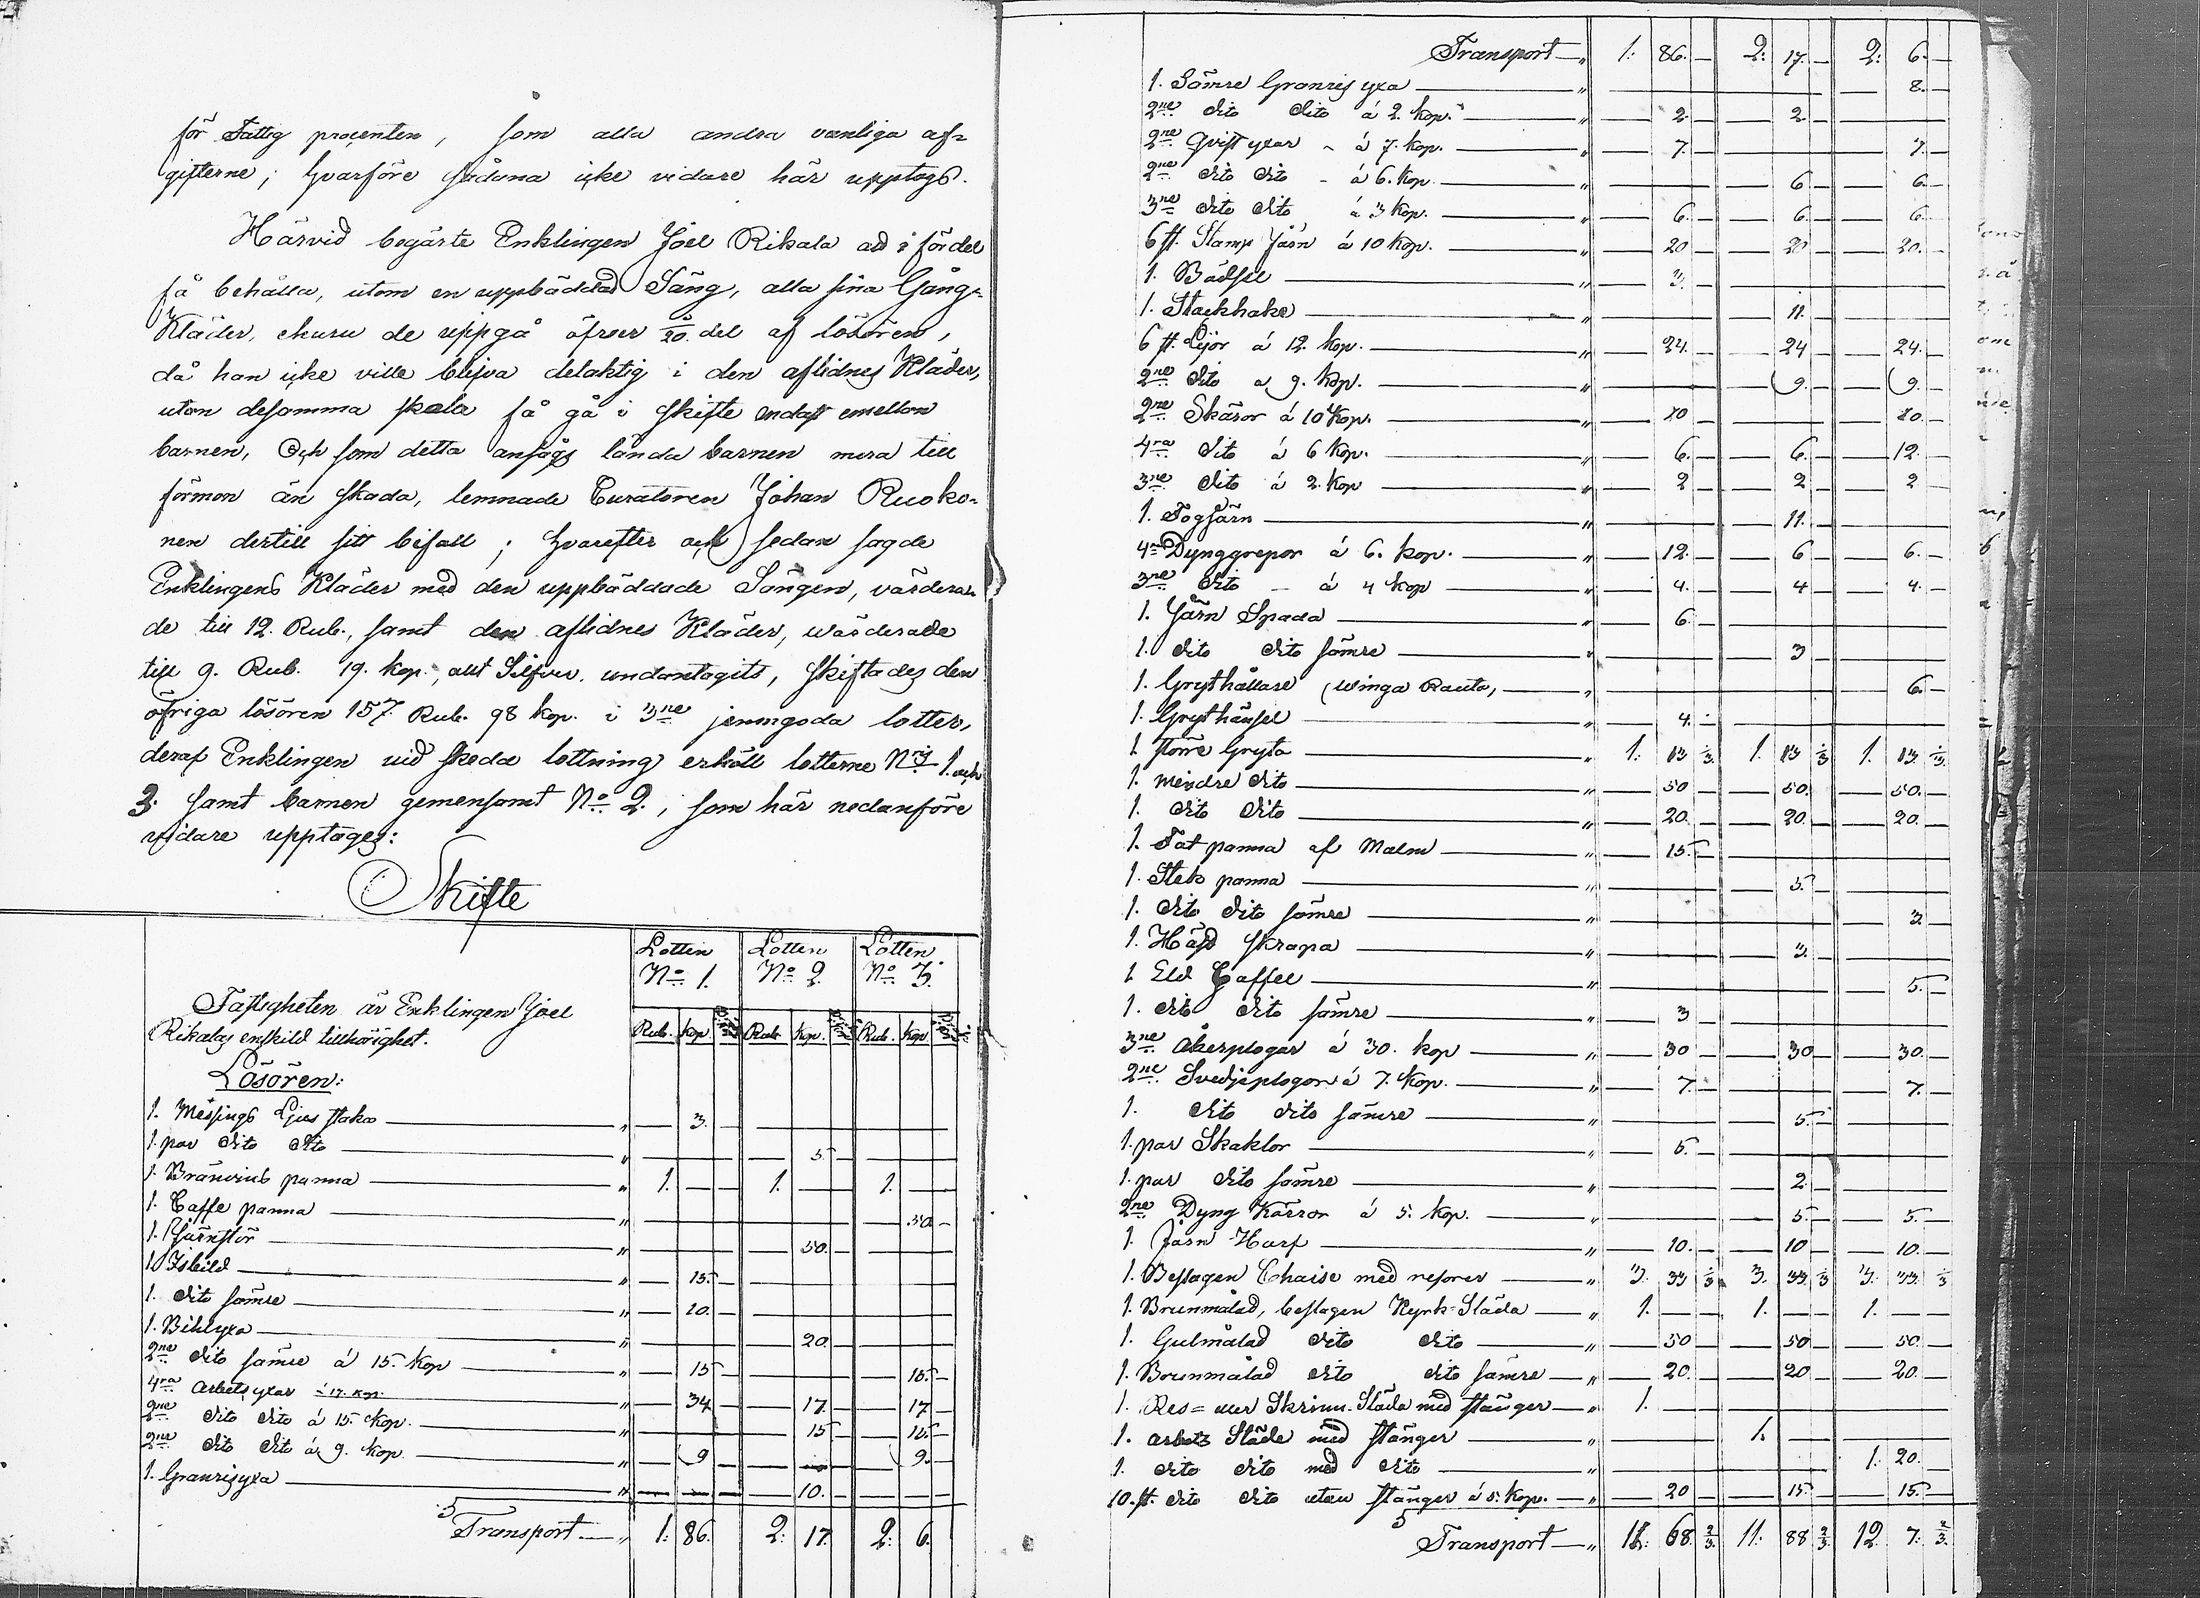 för Fattig procenten, som alla andra vanliga af=
gifterne; hvarföre sådana icke vidare här upptogs.
Härvid begärte Enklingen Joel Rikala att i fördel
få behålla, utom en uppbäddad Säng, alla sina Gång=
Kläder, ehuru de uppgå öfver 1/20 del af lösören,
då han icke ville blifva delaktig i den aflidnes Kläder,
utan desamma skola få gå i skifte endast emellan
barnen, Och som detta ansågs lända barnen mera till
förmon än skada, lemnade Curatoren Johan Ruoko=
nen dertill sitt bifall; hvarefter och sedan sagde
Enklingens Kläder med den uppbäddade Sängen, värdera=
de till 12. Rub., samt den aflidnes Kläder, wärderade
till 9. Rub. 19. kop., allt Silfver, undantagits, skiftades den
öfriga lösören 157. Rub. 98 kop. i 3ne jemngoda lotter,
deraf Enklingen vid skedd lottning erhöll lotterne Nris 1. och
3. samt barnen gemensamt No 2., som här nedanföre
vidare upptages:
Skifte
Lotten No 1. Lotten No 2. Lotten No 3.
Fastigheten är Enklingen Joel
Rikalas enskild tillhörighet.
Rub. Kop. Rub. Kop. Rub. Kop.
Lösören:
1. Messings Ljus staka — „ — 3.
1. par dito dito — „ — 5
1. Bränvins panna — „ 1. — 1. — 1. —
1. Caffe panna — „ — 50 —
1. Järnstör — „ — 50. —
1. Isbild — „ — 15. —
1. dito sämre — „ — 10. —
1. Bihlyxa — „ — 20. —
2ne dito sämre á 15. Kop — „ — 15 — 15. —
4ra arbets yxar á 17. Kop. — „ — 34 — 17. — 17 —
2ne dito dito á 15. Kop. — „ — 15 — 15. —
2ne dito dito á 9. Kop — „ — 9 — 9. —
1. Granrisyxa — „ — 10. —
Transport — „ 1: 86. 2: 17. 2: 6.
Transport — „ 1: 86. — 2: 17. — 2: 6. —
1. Sämre Granris yxa — „ — 8. —
2ne dito dito á 2. kop. — „ — 2 — 2 —
2ne Qvist yxar á 7. kop. — „ — 7. — 7. —
2ne dito dito á 6. Kop. — „ — 6 — 6. —
3ne dito dito á 3 Kop. — „ — 6. — 6. — 6. —
6 st. Stamp Järn á 10 Kop. — „ — 20 — 20 — 20. —
1. Bädsil — „ — 3. —
1. Stackhake — „ — 11. —
6 st. Lijor á 12. kop. — „ — 24. — 24 — 24. —
2ne dito a 9. kop. — „ — 9. — 9. —
2ne Skäror á 10 Kop. — „ — 10 — 10. —
4ra dito á 6 Kop. — „ — 6. — 6. — 12. —
3ne dito á 2. Kop — „ — 2 — 2 — 2 —
1. Togjärn — „ — 11. —
4ra Dynggrepor á 6. kop. — „ — 12. — 6 — 6. —
3ne dito — á 4 Kop — „ — 4. — 4 — 4. —
1. Järn Spada — „ — 6. —
1. dito dito sämre — „ — 3 —
1. Grythållare (Winga Rauta, — „ — 6. —
1. Grythängsel — „ — 4. —
1. större Gryta — „ 1: 13 1/3 1. 13 1/3 1. 13. 1/3
1. mindre dito — „ — 50 — 50. — 50. —
1. dito dito — „ — 20. — 20. — 20. —
1. Fat panna af Malm — „ — 15. —
1. Stek panna — „ — 5. —
1. dito dito sämre — „ — 3. —
1. Häfd skrapa — „ — 3. —
1 Eld Gaffel — „ — 5. —
1. dito dito sämre — „ — 3 —
3ne åkerplogar á 30. kop — „ — 30 — 30 — 30. —
2ne Svedjeplogar á 7. Kop. — „ — 7. — 7. —
1. dito dito sämre — „ — 5. —
1. par Skaklor — „ — 5. —
1. par dito sämre — „ — 2 —
2ne Dyng Kärror á 5. kop. — „ — 5. — 5. —
1. Järn Harf — „ — 10. — 10 — 10. —
1. Beslagen Chaise med resorer — „ 3. 33 1/3 3. 33. 1/3 3. 33. 1/3
1. Brunmålad, beslagen Kyrk=Släda — „ 1. — 1. — 1. —
1. Gulmålad dito dito — „ — 50 — 50 — 50. —
1. Brunmålad dito dito sämre — „ — 20. — 20 — 20. —
1. Res= eller Skrinn-Släda med stänger — „ 1. —
1. arbets Släde med stänger — „ — 1. —
1. dito dito med dito — „ — 1. 20. —
10. st. dito dito utan stänger á 5. Kop. — „ — 20 — 15. — 15. —
Transport — „ 12. 68. 2/3 11. 88 2/3 12 7. 2/3